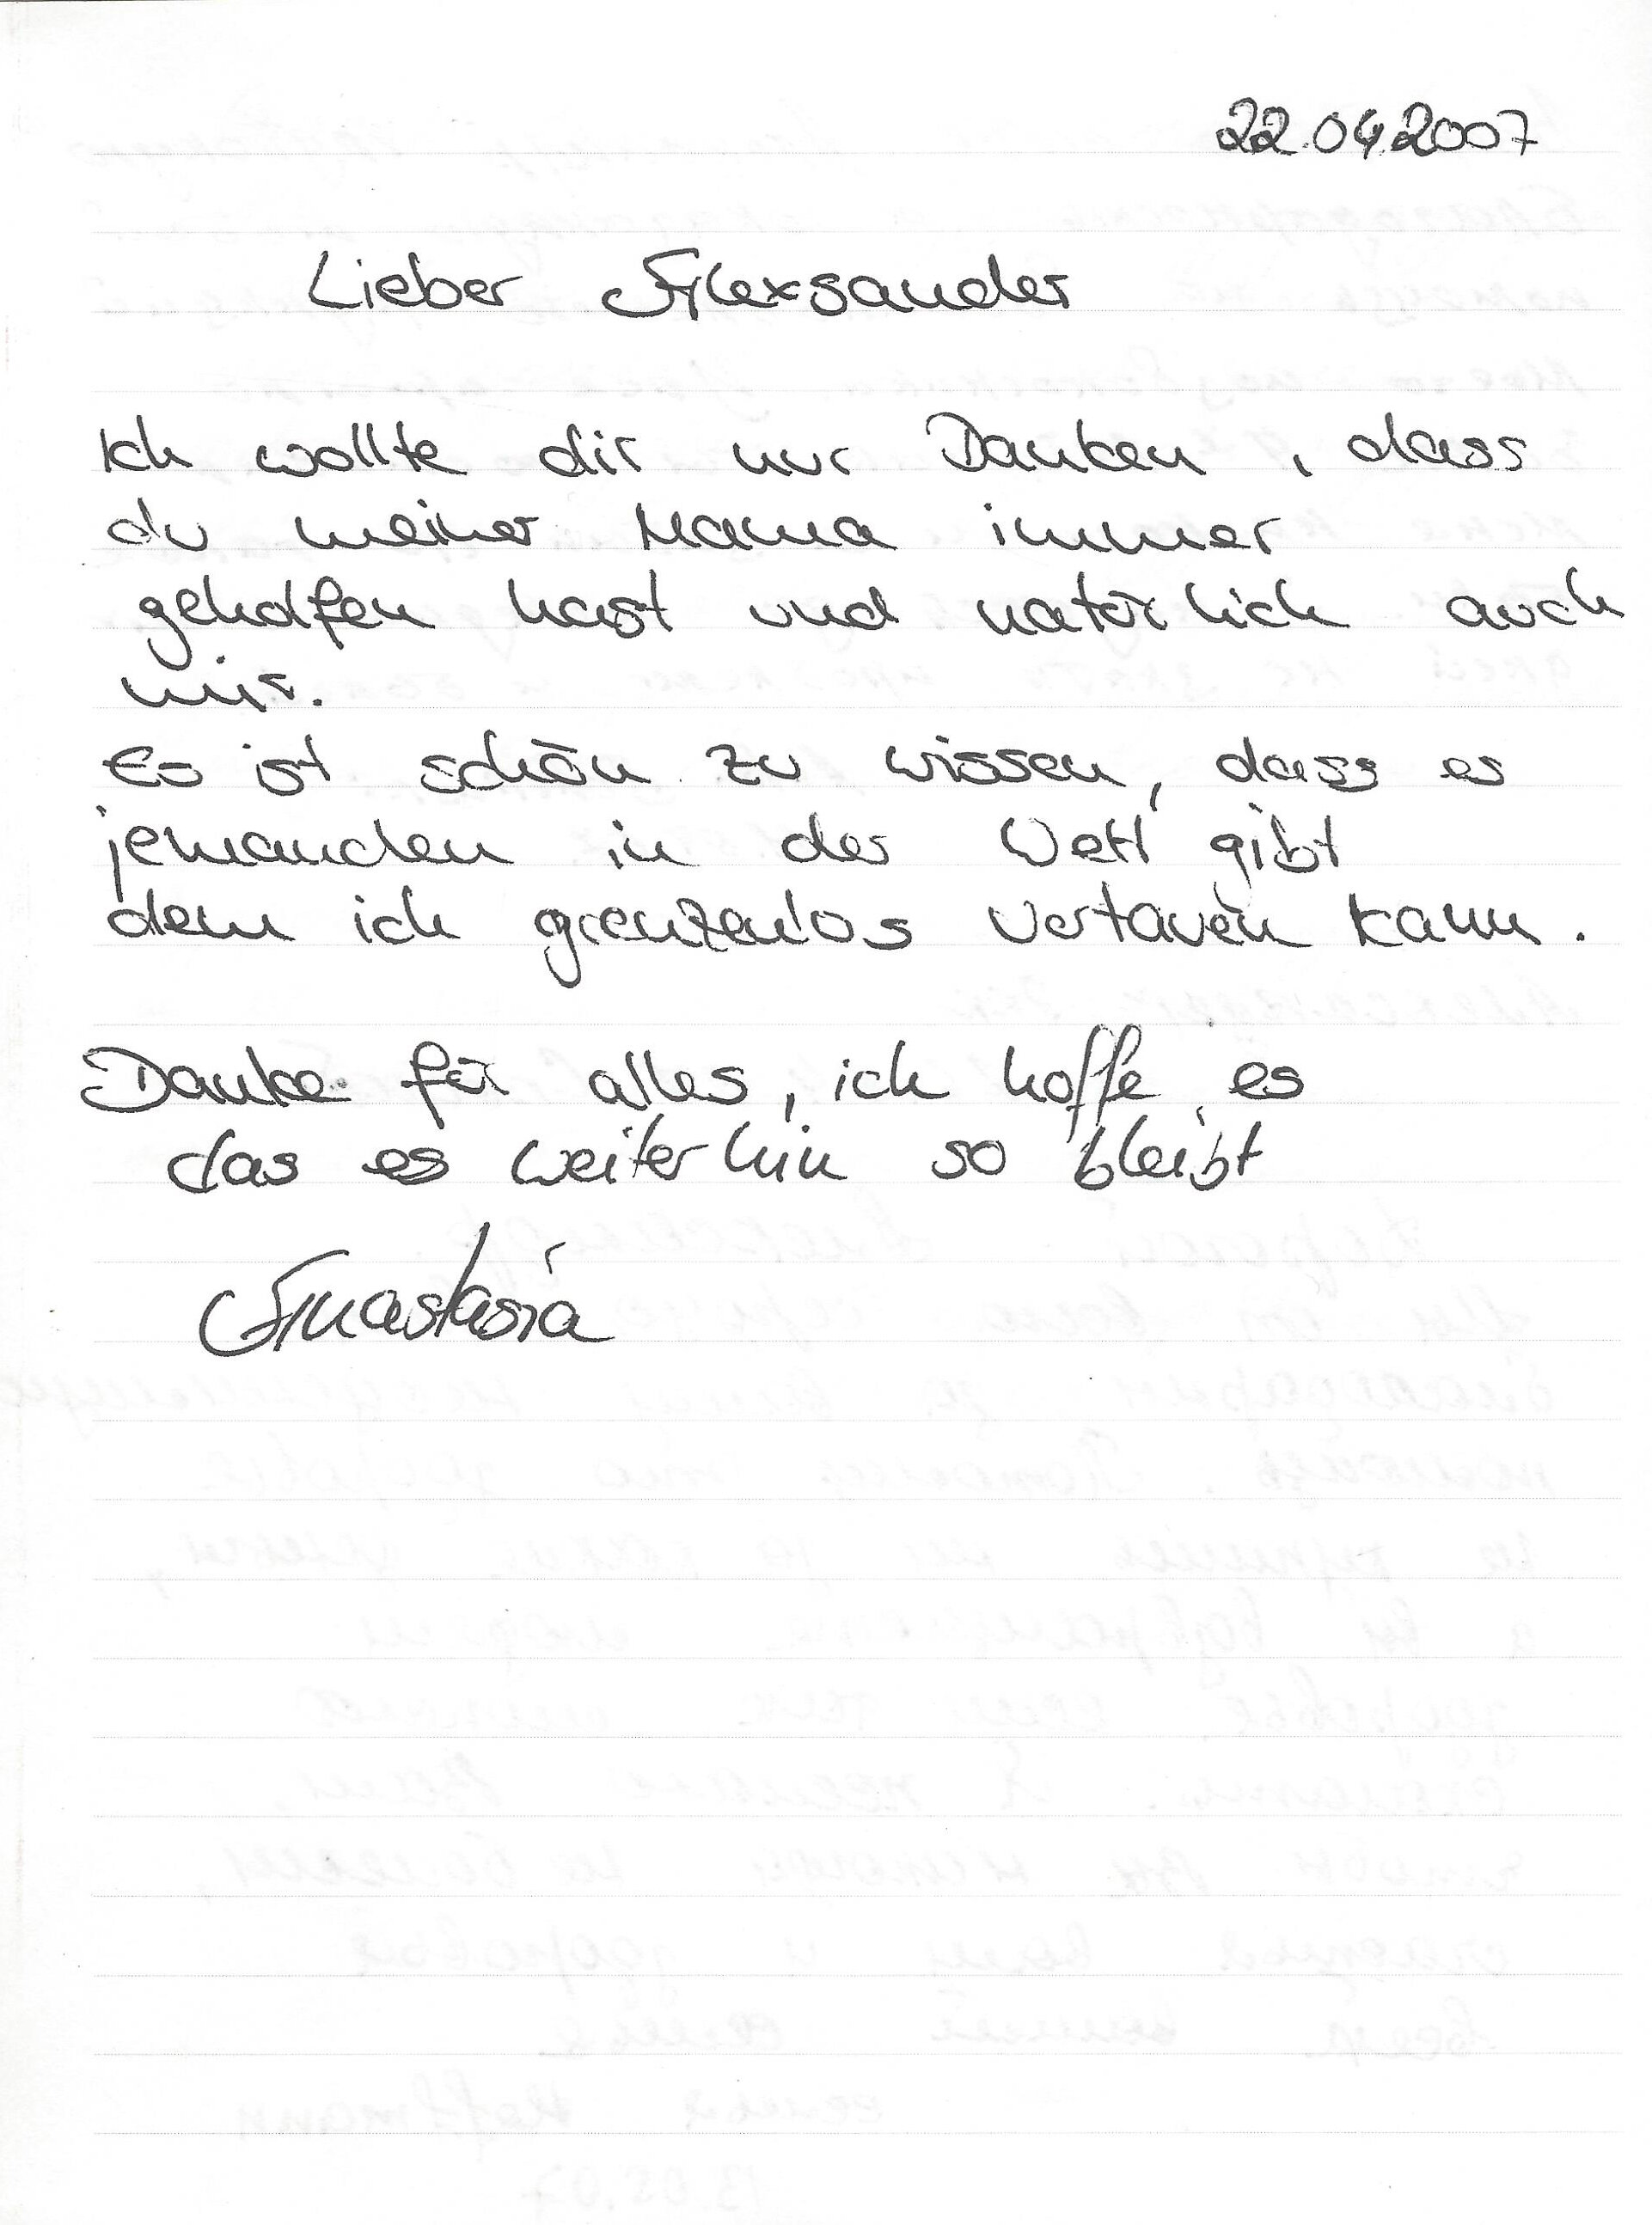 22.04.2007
Lieber Alexsander
Ich wollte dir nur Danken, dass
du meiner Mama immer
geholfen hast und natürlich auch
mir.
Es ist schön zu wissen, dass es
jemanden in der Welt gibt
dem ich grenzenlos vertauen kann.
Danke für alles, ich hoffe es
das es weiterhin so bleibt
Anastasia